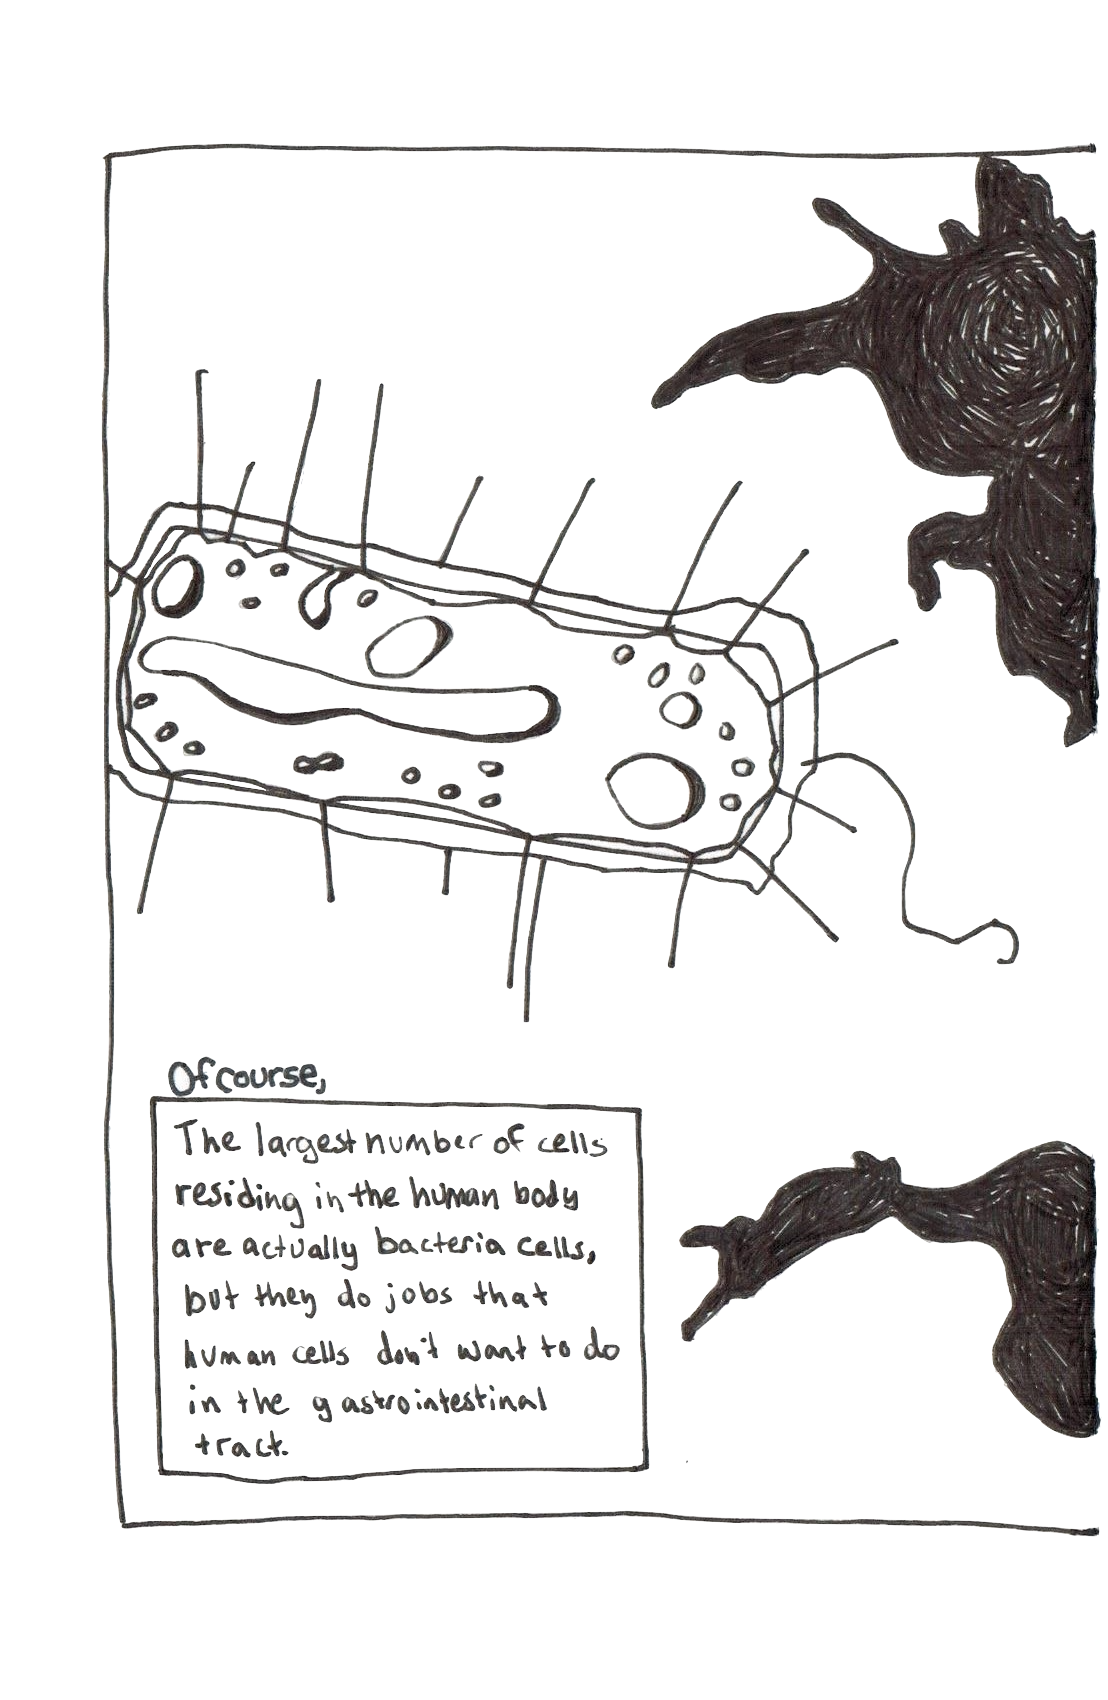 Of course,
The largest number of cells
residing in the human body
are actually bacteria cells,
but they do jobs that
human cells don't want to do
in the gastrointestinal
tract.